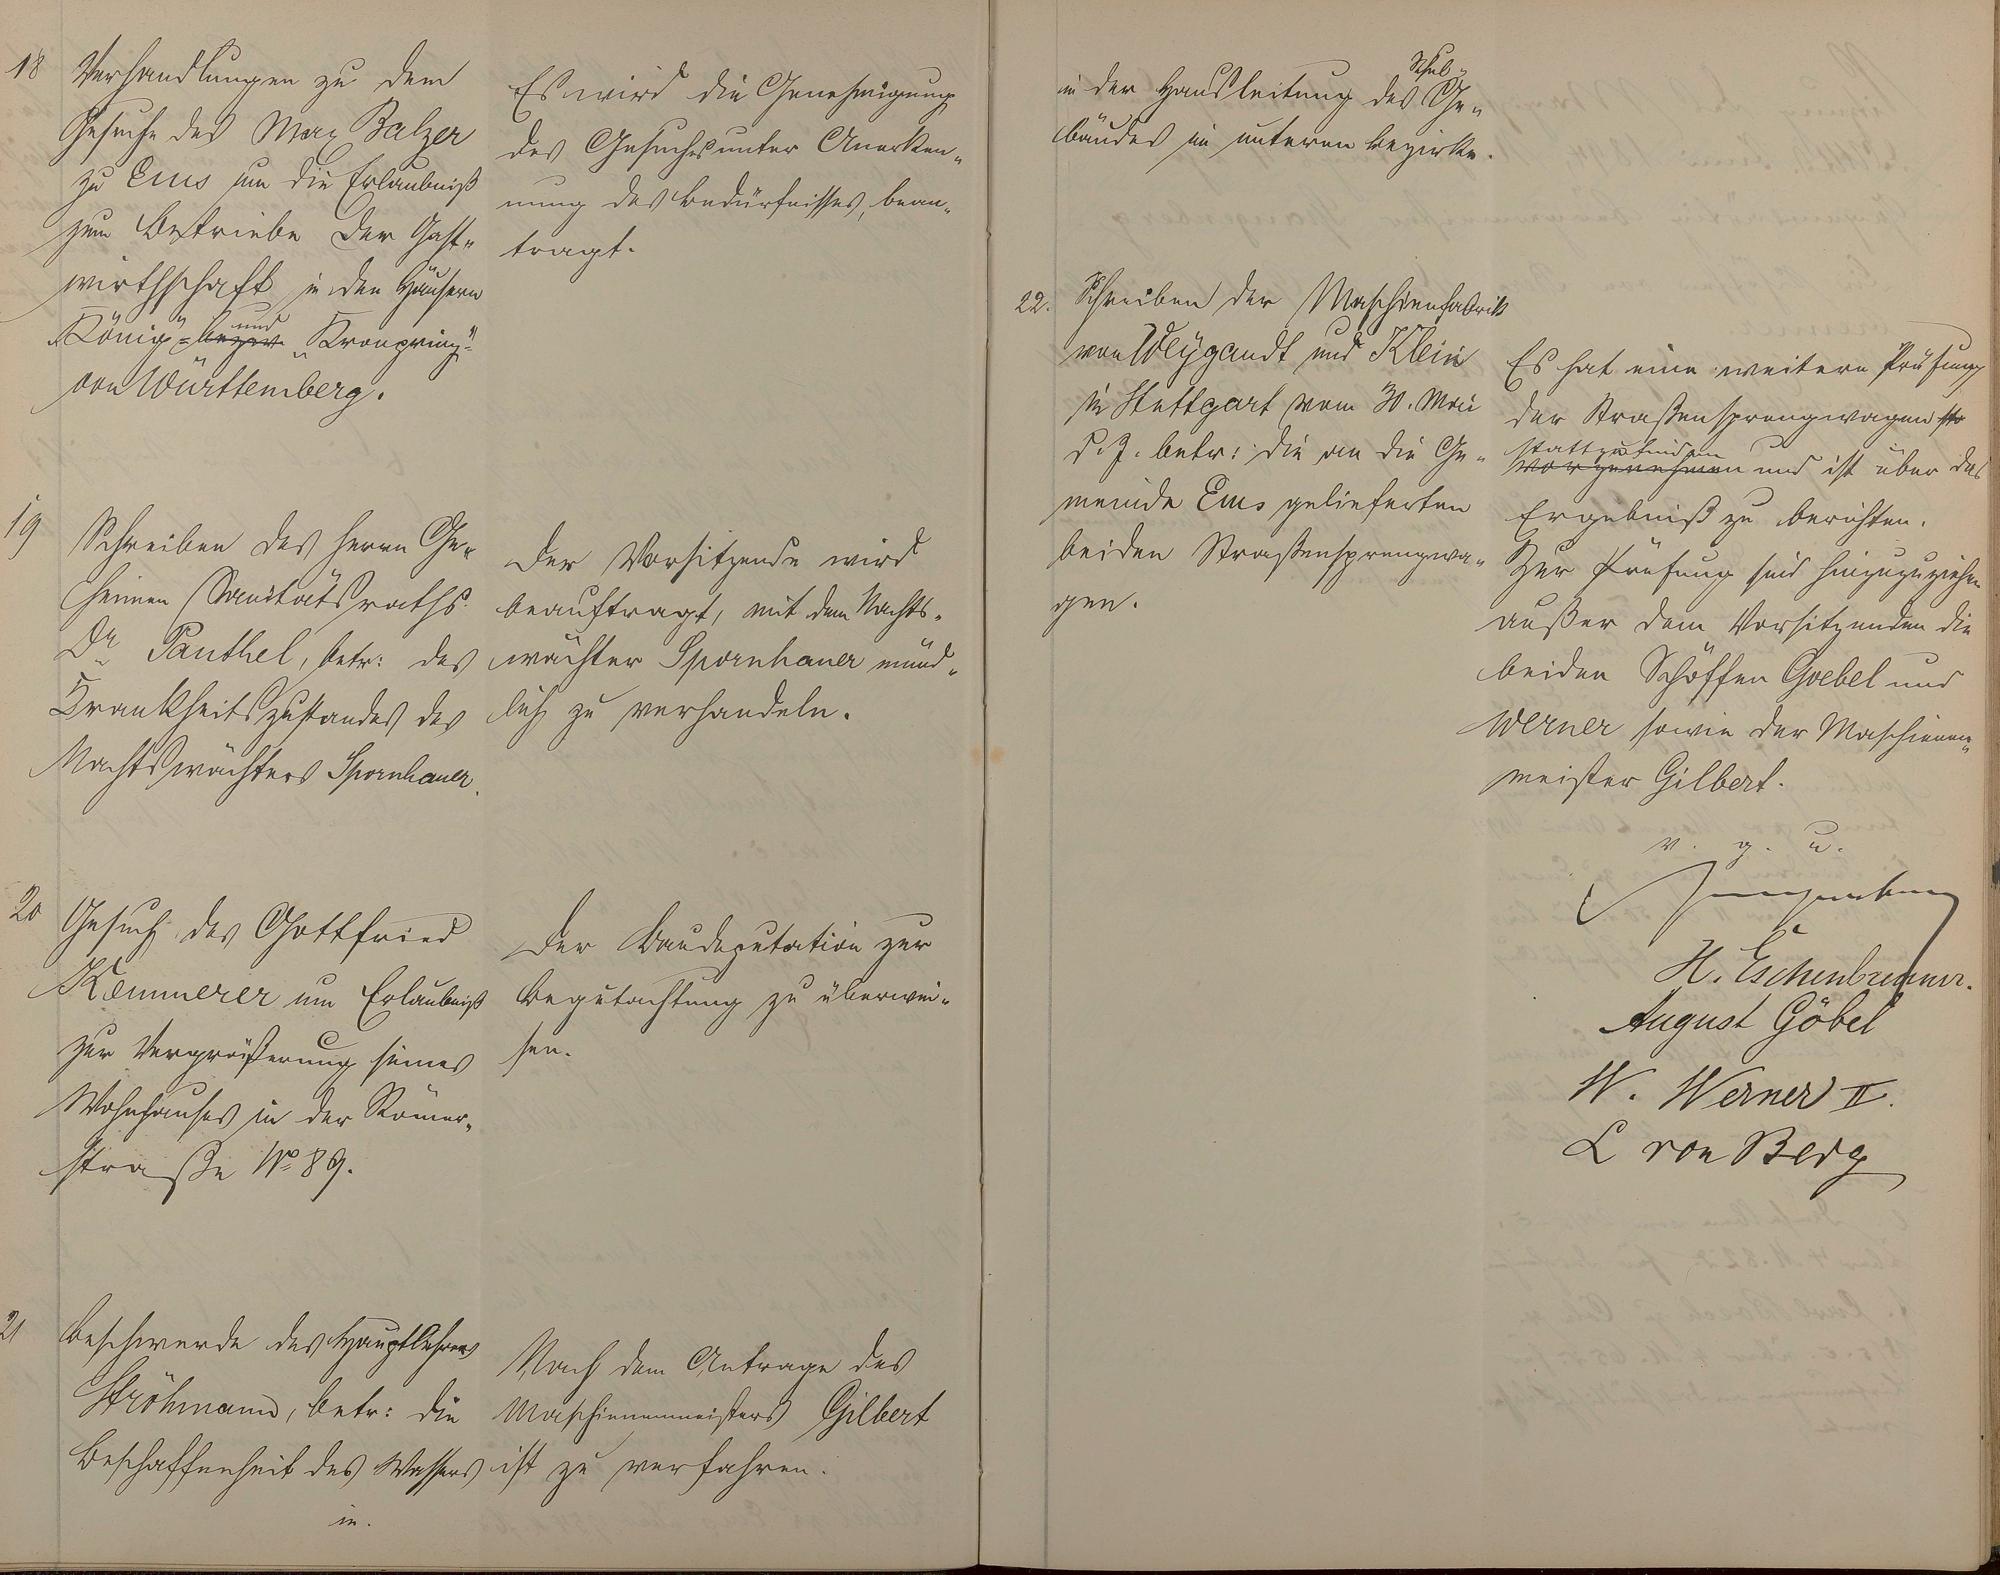 18
Verhandlungen zu dem
Gesuche des Max Balzer
zu Ems um die Erlaubniß
zum Betriebe der Gast-
wirthschaft in den Häusern
„König“ und „Kronprinz“
von Württemberg.
Es wird die Genehmigung
des Gesuches unter Anerken-
nung des Bedürfnisses, bean-
tragt.
19
Schreiben des Herrn Ge-
heimen Sanitätsraths
Dr Panthel, betr: des
Krankheitszustandes des
Nachtswächters Spornhauer.
Der Vorsitzende wird
beauftragt, mit dem Nachts-
wächter Spornhauer münd-
lich zu verhandeln.
20
Gesuch des Gottfried
Kæmmerer um Erlaubniß
zur Vergrößerung seines
Wohnhauses in der Römer-
straße No 89.
Der Baudeputation zur
Begutachtung zu überwei-
sen.
21
Beschwerde des Hauptlehrers
Ströhmann, betr: die
Beschaffenheit des Wassers
in.
Nach dem Antrage des
Maschienenmeisters Gilbert
ist zu verfahren.
in der Hausleitung des Schul-Ge-
bäudes im unteren Bezirke.
22.
Schreiben der Maschienfabrik
von Weygandt und Klein
in Stuttgart vom 30. Mai
d. J. betr: die an die Ge-
meinde Ems gelieferten
beiden Straßensprengwa-
gen.
Es hat eine weitere Prüfung
der Straßensprengwagen
stattzufinden und ist über das
Ergebniß zu berichten.
Zur Prüfung sind hinzuzuziehen
außer dem Vorsitzenden die
beiden Schöffen Goebel und
Werner sowie der Maschienen-
meister Gilbert.
v. g. u.
H. Eschenbrenner.
August Göbel
W. Werner II.
L von Berg